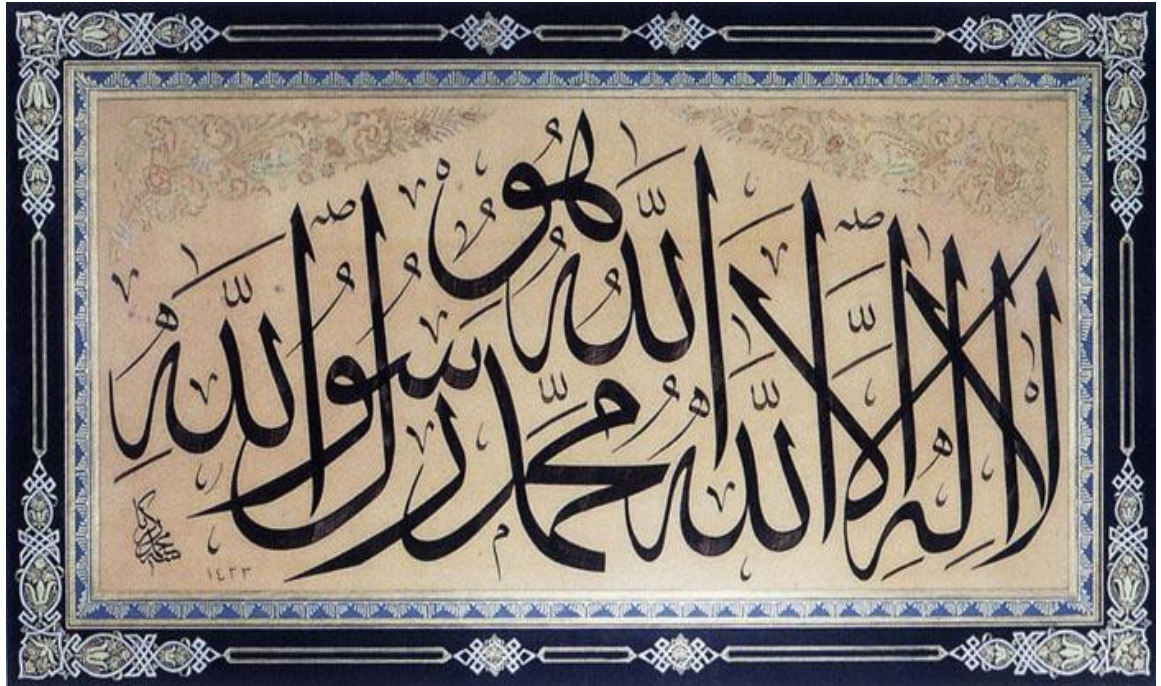 هُوَ
اللّٰه
لا اله الا اللّٰه محمد رسول اللّٰه